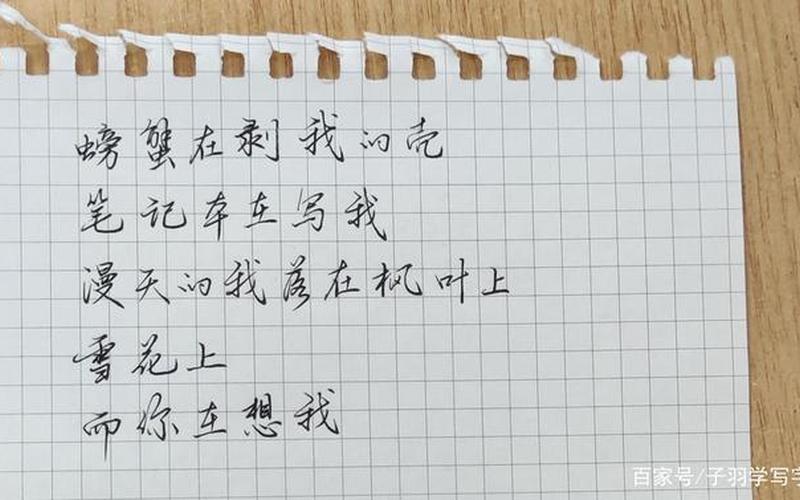 螃蟹在剥我的壳
笔记本在写我
漫天的我落在枫叶上
雪花上
而你在想我
百家号/子羽学写字